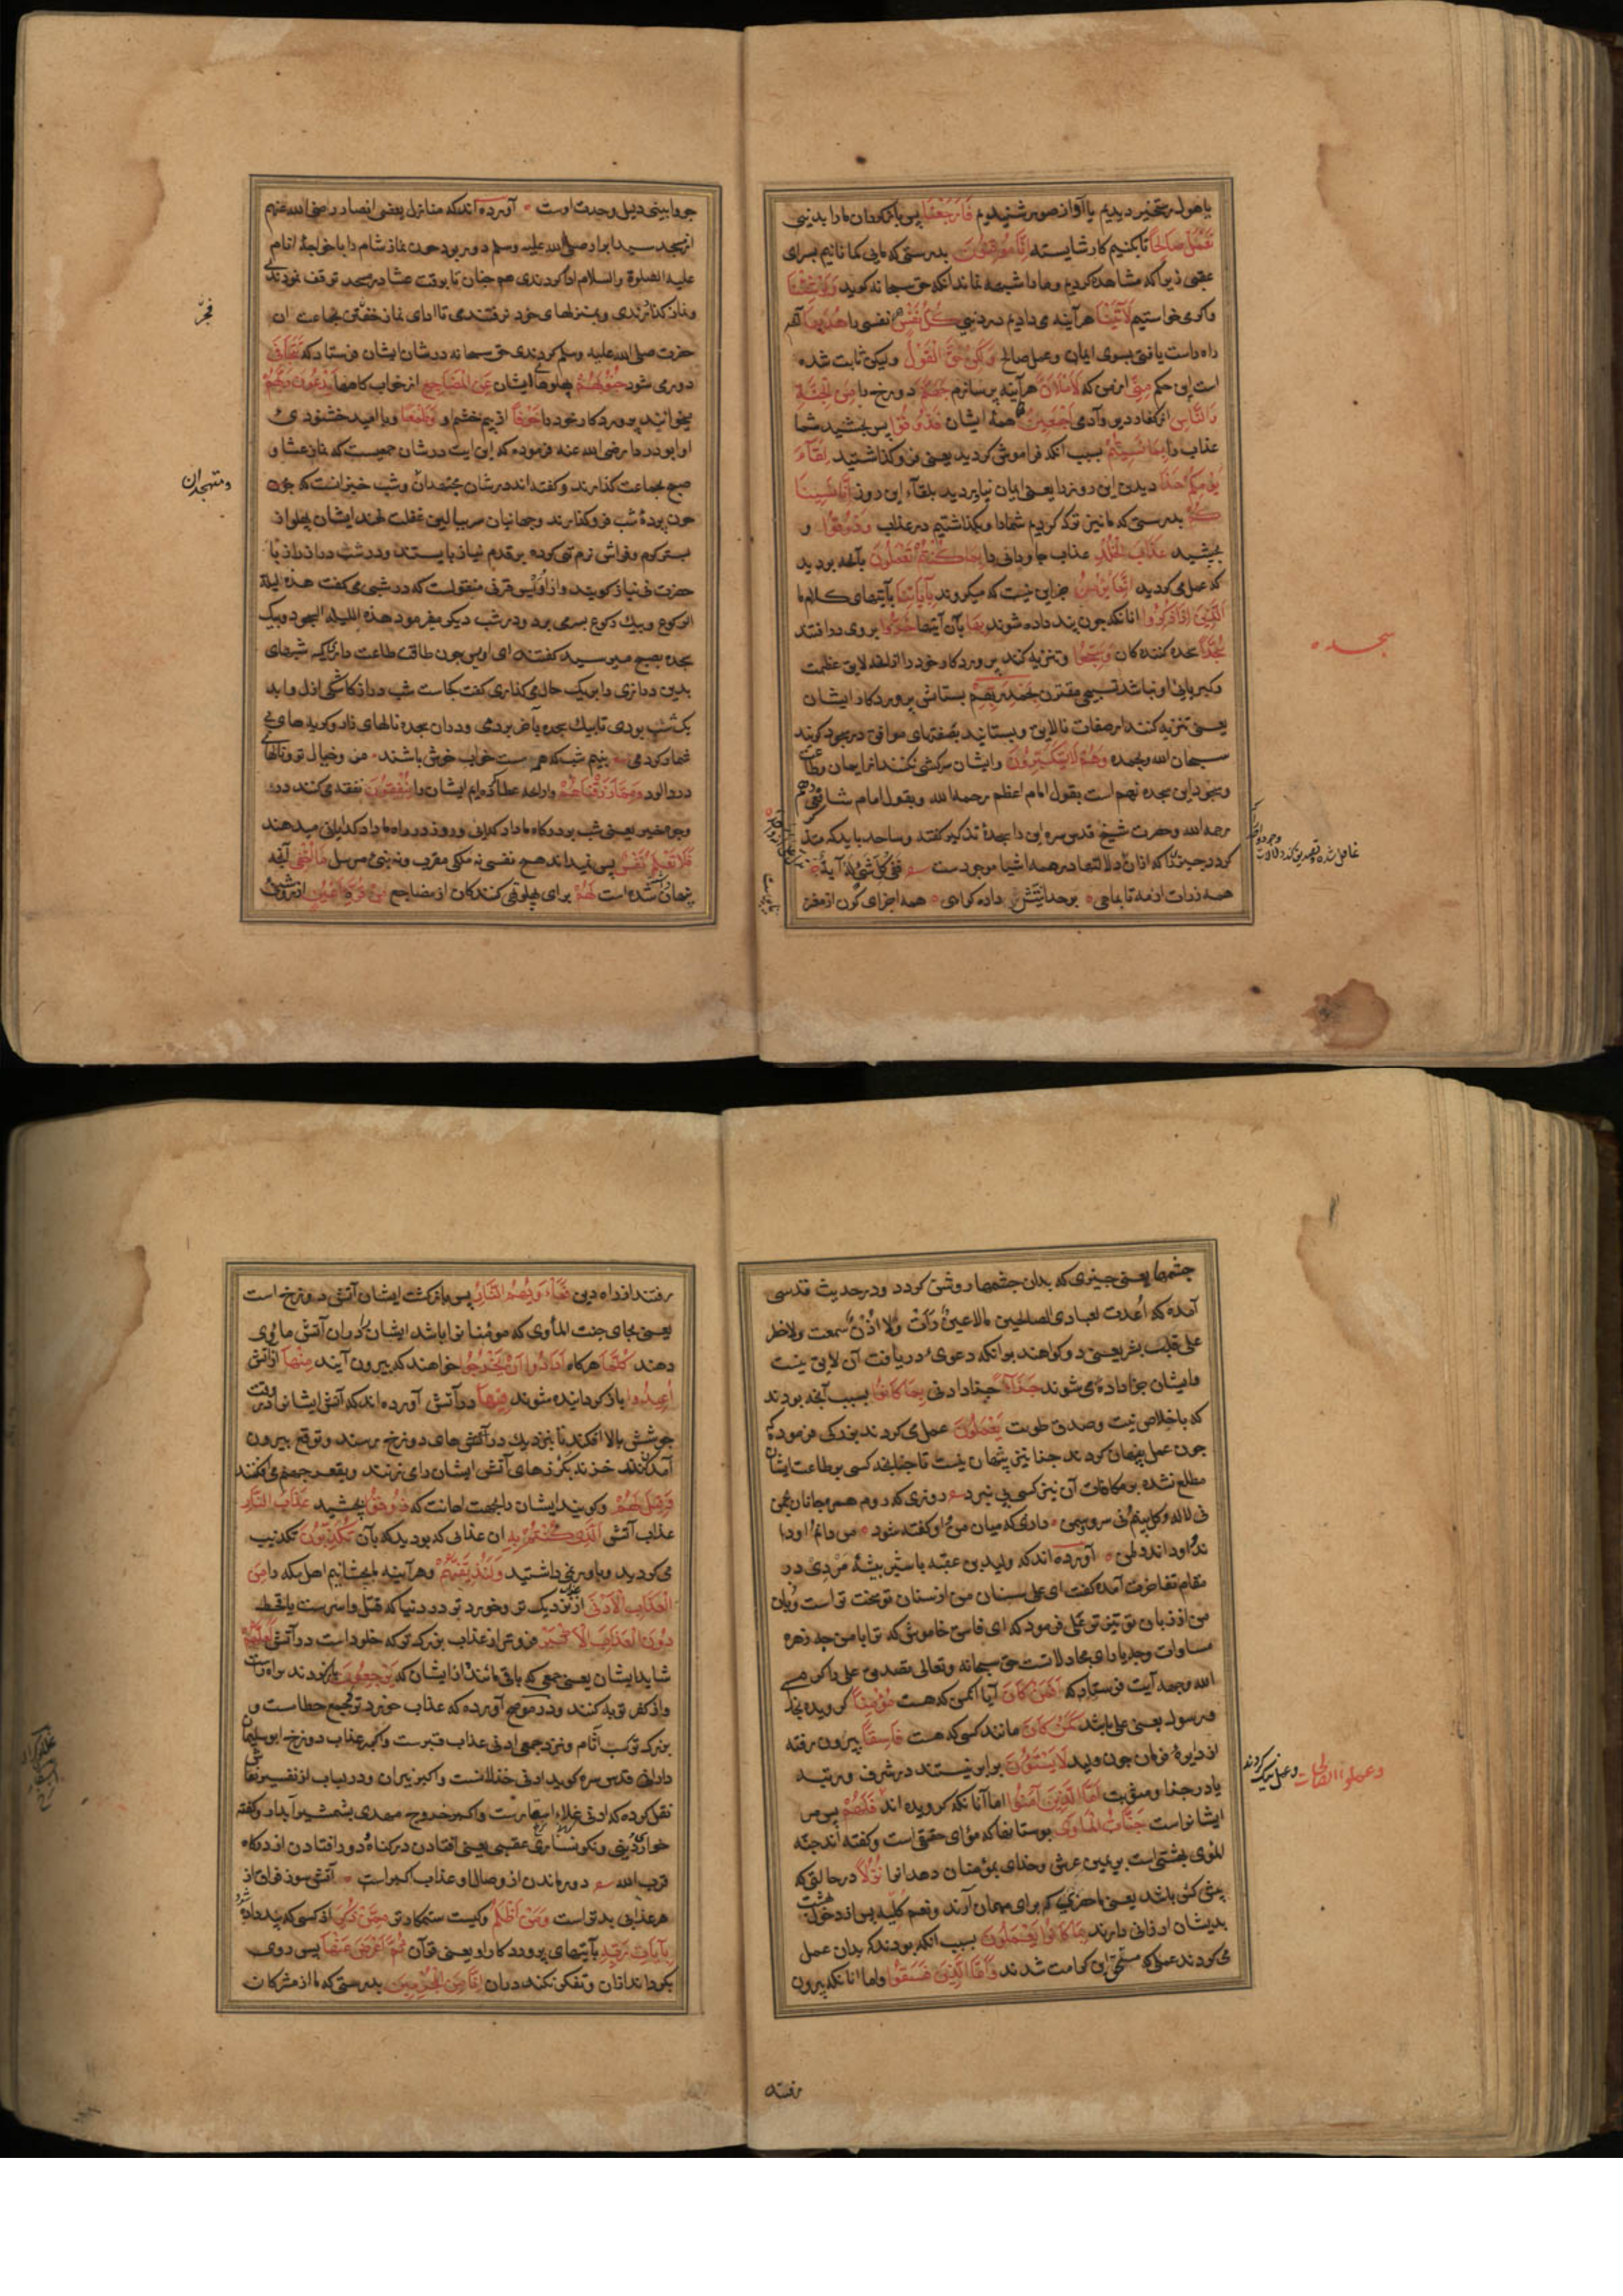 یا هول رستخیز دیدیم یا آواز صور شنیدیم فَارْجِعْنَا پس بازگردان ما را بدنیی
نَعْمَلْ صَالِحًا تا بکنیم کار شایسته اِنَّا مُوقِنُونَ بدرستی که مایی کمانانیم برای
عقبی زیرا که مشاهده کردیم و ما را شبهه نماند انکه حق سبحانه کوید وَلَوْ شِئْنَا
واکر می خواستیم لَآتَیْنَا هر آینه می دادیم در دنیی كُلَّ نَفْسٍ نفسی را هُدٰیهَا آنچه
راه راست یافتی بسوی ایمان وعمل صالح وَلٰكِنْ حَقَّ الْقَوْلُ ولیکن ثابت شده
است این حکم مِنّی از من که لَاَمْلَاَنَّ هر آینه پر سازم جَهَنَّمَ دوزخ را مِنَ الْجِنَّةِ
وَالنَّاسِ از کفار دیو وآدمی اَجْمَعِینَ همهٔ ایشان فَذُوقُوا پس بچشید شما
عذاب را بِمَا نَسِیتُمْ بسبب انکه فراموش کردید یعنی فرو کذاشتید لِقَآءَ
یَوْمِكُمْ هٰذَا دیدن این روز را یعنی ایمان نیاوردید بلقآء این روز اِنَّا نَسِینَا
كُمْ بدرستی که ما نیز ترک کردیم شما را وبکذاشتیم در عذاب وَذُوقُوا و
بچشید عَذَابَ الْخُلْدِ عذاب جاودانی را بِمَا كُنْتُمْ تَعْمَلُونَ بآنچه بودید
که عمل می کردید اِنَّمَا یُؤْمِنُ جز این نیست که میکروند بِآیَاتِنَا بآیتهای کلام ما
اَلَّذِینَ اِذَا ذُكِّرُوا انانکه جون پند داده شوند بِهَا بآن آیتها خَرُّوا بروی در افتند
سُجَّدًا سجده کننده کان وَسَبَّحُوا وتنزیه کنند پروردکار خود را از انچه لایق عظمت
وکبریائی او نباشد تسبیحی مقترن بِحَمْدِ رَبِّهِمْ بستایش پروردکار ایشان
یعنی تنزیه کنند از صفات نالایق وبستایند بصفتهای موافق در سجود کویند
سبحان الله وبحمده وَهُمْ لَا یَسْتَكْبِرُونَ وایشان سرکشی نکنند از ایمان وطاعت
وسجود این سجده نهم است بقول امام اعظم رحمه الله وبقول امام شافعی دهم
رحمه الله وحضرت شیخ قدس سره این را سجدهٔ تذکیر کفته وساجد باید که متذ
کر کردد جیزی را که از ان دلالتها در همه اشیا موجودست فَفِی كُلِّ شَیْءٍ لَهُ آیَةٌ
همه ذرات از مه تا بماهی بوحدانیتش داده کواهی همه اجزای کون از مغز
سجده
جو وا بینی دلیل وحدت اوست آورده اند که منازل بعضی انصار رضی الله عنهم
از مسجد سید ابرار صلی الله علیه وسلم دور بود جون نماز شام را با خواجهٔ انام
علیه الصلوة والسلام ادا کردندی هم جنان تا بوقت عشا در مسجد توقف نمودندی
ونماز کذاردندی وبمنزلهای خود نرفتندی تا ادای نماز خفتن بجماعت ان
حضرت صلی الله علیه وسلم کردندی حق سبحانه در شان ایشان فرستاد که تَتَجَافٰی
دور می شود جُنُوبُهُمْ پهلوهای ایشان عَنِ الْمَضَاجِعِ از خواب کاهها یَدْعُونَ رَبَّهُمْ
میخوانند پروردکار خود را خَوْفًا از بیم خشم او وَطَمَعًا وبامید خشنودی
او ابو دردا رضی الله عنه فرموده که این ایت در شان جمعیست که نماز عشا و
صبح بجماعت کذارند وکفته اند در شان مجتهدان وشب خیزانست که جون
جون پردهٔ شب فرو کذارند وجهانیان سر ببالین غفلت نهند ایشان پهلو از
بستر کرم وفراش نرم تهی کرده بر قدم نیاز بایستند ودر شب دراز راز با
حضرت بی نیاز کویند واز اویس قرنی منقولست که در شبی می کفت هذه لیلة
الرکوع وبیک رکوع بسر می برد ودر شب دیکر میفرمود هذه اللیلة السجود وبیک
سجده بصبح میرسید کفتند ای اویس جون طاقت طاعت داری که شبهای
بدین درازی را بر یک حال می کذاری کفت کجاست شب دراز کاشکی ازل وابد
یک شب بودی تا بیک سجده بآخر بردمی ودران سجده نالهای زار وکریه های بی
شمار کردمی نیم شب که هر مست خواب خوش باشند من وخیال تو ونالهای
درد الود وَمِمَّا رَزَقْنَاهُمْ واز انچه عطا کرده ایم ایشان را یُنْفِقُونَ نفقه می کنند در
وجوه خیر یعنی شب بر درکاه ما داد کدایی وروز در راه ما داد کدایانی میدهند
فَلَا تَعْلَمُ نَفْسٌ پس نمیداند هیچ نفسی نه ملکی مقرب ونه نبیی مرسل مَا اُخْفِیَ آنچه
پنهان داشته شده است لَهُمْ برای پهلو تهی کنندکان از مضاجع مِنْ قُرَّةِ اَعْیُنٍ از روشنی
ومتهجدان
جشمها یعنی جیزی که بدان جشمها روشن کردد ودر حدیث قدسی
آمده که اعددت لعبادی الصالحین مالا عین رأت ولا اذن سمعت ولا خطر
علی قلب بشر یعنی
وایشان جزا داده می شوند جَزَآءً جزا دادنی بِمَا كَانُوا بسبب آنچه بودند
که باخلاص نیت وصدق طویت یَعْمَلُونَ عمل می کردند بزرکی فرموده که
جون عمل پنهان کردند جزا نیز پنهان نیست تا جنانچه کسی بر طاعت ایشان
مطلع نشده بر مکافات آن نیز کسی پی نبرد
آورده اند که ولید بن عقبه با شیر بیشهٔ مردی در
مقام تفاخر آمده کفت ای علی سنان من از سنان تو سخت تر است وزبان
من از زبان تو تیز تر علی فرمود که ای فاسق خاموش که ترا با من جه زهره
مساوات وجه یارای مجادلاتست حق سبحانه وتعالی بتصدیق علی کرم
الله وجهه آیت فرستاد که اَفَمَنْ كَانَ آیا آنکس که هست مُؤْمِنًا کرویده بخدا
ورسول یعنی علی باشد كَمَنْ كَانَ مانند کسی که هست فَاسِقًا بیرون رفته
از دایرهٔ فرمان جون ولید لَا یَسْتَوُونَ برابر نیستند در شرف ورتبه
یا در جزا ومثوبت اَمَّا الَّذِینَ آمَنُوا اما آنانکه کرویده اند فَلَهُمْ پس مر
ایشانراست جَنَّاتُ الْمَاْوٰی بوستانها که ماوای حقیقی است وکفته اند جنة
الماوی بهشتی است بر یمین عرش وخدای بمؤمنان دهد انرا نُزُلًا در حالتی که
پیش کش باشد یعنی ماحضری که برای مهمان آرند ونعیم کلیه پس از دخول بهشت
بدیشان ارزانی دارند بِمَا كَانُوا یَعْمَلُونَ بسبب انکه بودند که بدان عمل
می کردند عملی که مستحق این کرامت شدند وَاَمَّا الَّذِینَ فَسَقُوا واما انانکه بیرون
رفتند
وعملوا الصالحات وعمل نیک کردند
رفتند از راه دین فَمَاْوٰیهُمُ النَّارُ پس بازکشت ایشان آتش دوزخ است
یعنی بجای جنت الماوی که مؤمنانرا باشد ایشان را دران آتش ماوی
دهند كُلَّمَا هرکاه اَرَادُوا اَنْ یَخْرُجُوا خواهند که بیرون آیند مِنْهَا از اتش
اُعِیدُوا باز کردانیده شوند فِیهَا در آتش آورده اند که آتش ایشانرا در وقت
جوشش بالا افکند تا بنزدیک درهای دوزخ برسند وتوقع بیرون
آمدن کنند خزنه بکرزهای آتش ایشان را می زنند وبقعر جهنم می افکنند
وَقِیلَ لَهُمْ وکویند ایشان را بجهت اهانت که ذُوقُوا بچشید عَذَابَ النَّارِ
عذاب آتش الَّذِی كُنْتُمْ بِهِ ان عذابی که بودید که بآن تُكَذِّبُونَ تکذیب
می کردید وباور نمی داشتید وَلَنُذِیقَنَّهُمْ وهر آینه بچشانیم اهل مکه را مِنَ
الْعَذَابِ الْاَدْنٰی از عذاب نزدیک تر وخورد تر در دنیا که قتل واسرست یا قحط
دُونَ الْعَذَابِ الْاَكْبَرِ فروتر از عذاب بزرکتر که خلود است در آتش لَعَلَّهُمْ
شاید ایشان یعنی جمعی که باقی مانند از ایشان که یَرْجِعُونَ باز کردند براه راست
واز کفر توبه کنند ودر موضح آورده که عذاب خورد تر
بزرکتر کسب آثام ونزد جمعی ادنی عذاب قبرست واکبر عذاب دوزخ ابو سلیمان
دارانی قدس سره کوید ادنی خذلانست واکبر نیران ودر لباب از تفسیر نقاش
نقل کرده که ادنی غلاء اسعارست واکبر خروج مهدی بشمشیر آبدار وکفته
خواری دنیی ونکونساری عقبی یعنی افتادن در کناه ودور افتادن از درکاه
قرب الله دور ماندن از وصال او عذاب اکبر است آتش سوز فراق از
هر عذابی بدتر است وَمَنْ اَظْلَمُ وکیست ستمکارتر مِمَّنْ ذُكِّرَ از کسی که پند داده شود
بِآیَاتِ رَبِّهِ بآیتهای پروردکار او یعنی قرآن ثُمَّ اَعْرَضَ عَنْهَا پس روی
بکرداند از ان وتفکر نکند دران اِنَّا مِنَ الْمُجْرِمِینَ بدرستی که ما از مشرکان